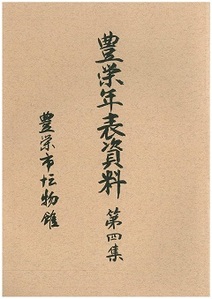 豊栄年表資料 第四集
豊栄市博物館